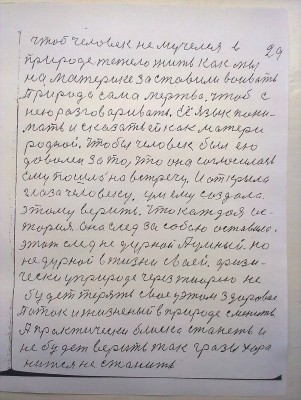 29
чтоб человек не мучелся в
природе тежело жить как мы
на материке заставили воивать
Природа сама мертва. чтоб с
нею разговаривать. Её язык пони-
мать и сказать ей как матери
родной. чтобы человек был ею
доволен за то, что она согласилась
ему пошло на встречу. И открыла
глаза человеку. ум ему создала.
этому верить. что каждая ис-
тория. Она след за собою оставила.
этот след не дурной А умный. но
не дурной в тизни своей. физи-
чески у природе через теорию не
будет терять свое у этом здоровие
А ток и тизненый в природе сменить
А практически близко станеть и
не будет верить так сразы хара
нится не станить